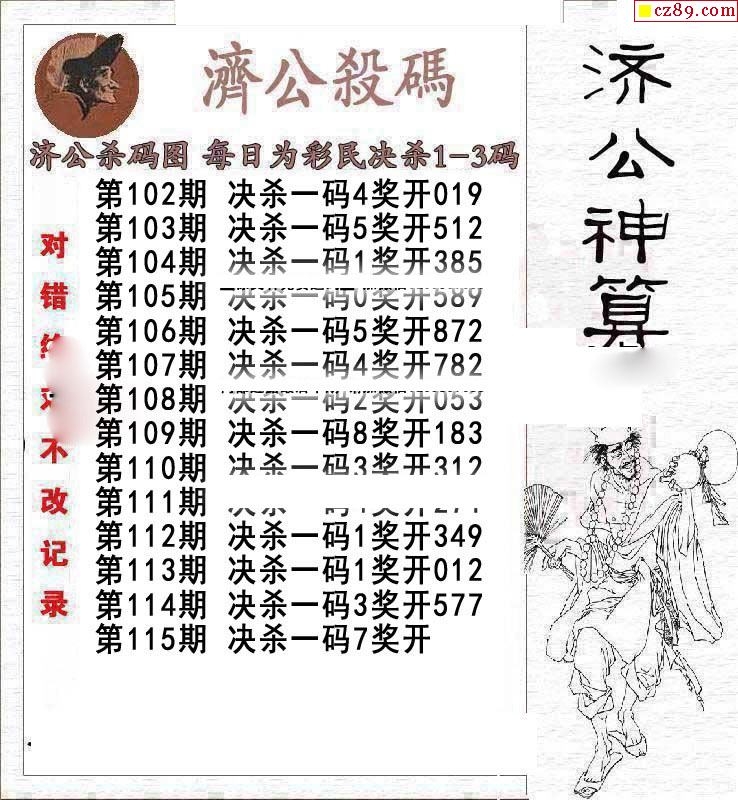 cz89.com
濟公殺碼
济公杀码图 每日为彩民决杀1-3码
第102期 决杀一码4奖开019
第103期 决杀一码5奖开512
第104期 决杀一码1奖开385
第105期 决杀一码0奖开589
第106期 决杀一码5奖开872
第107期 决杀一码4奖开782
第108期 决杀一码2奖开053
第109期 决杀一码8奖开183
第110期 决杀一码3奖开312
第111期
第112期 决杀一码1奖开349
第113期 决杀一码1奖开012
第114期 决杀一码3奖开577
第115期 决杀一码7奖开
对错
不改记录
济公神算